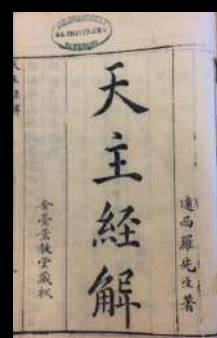 遠西羅先生著
天主経解
金臺景教堂藏板